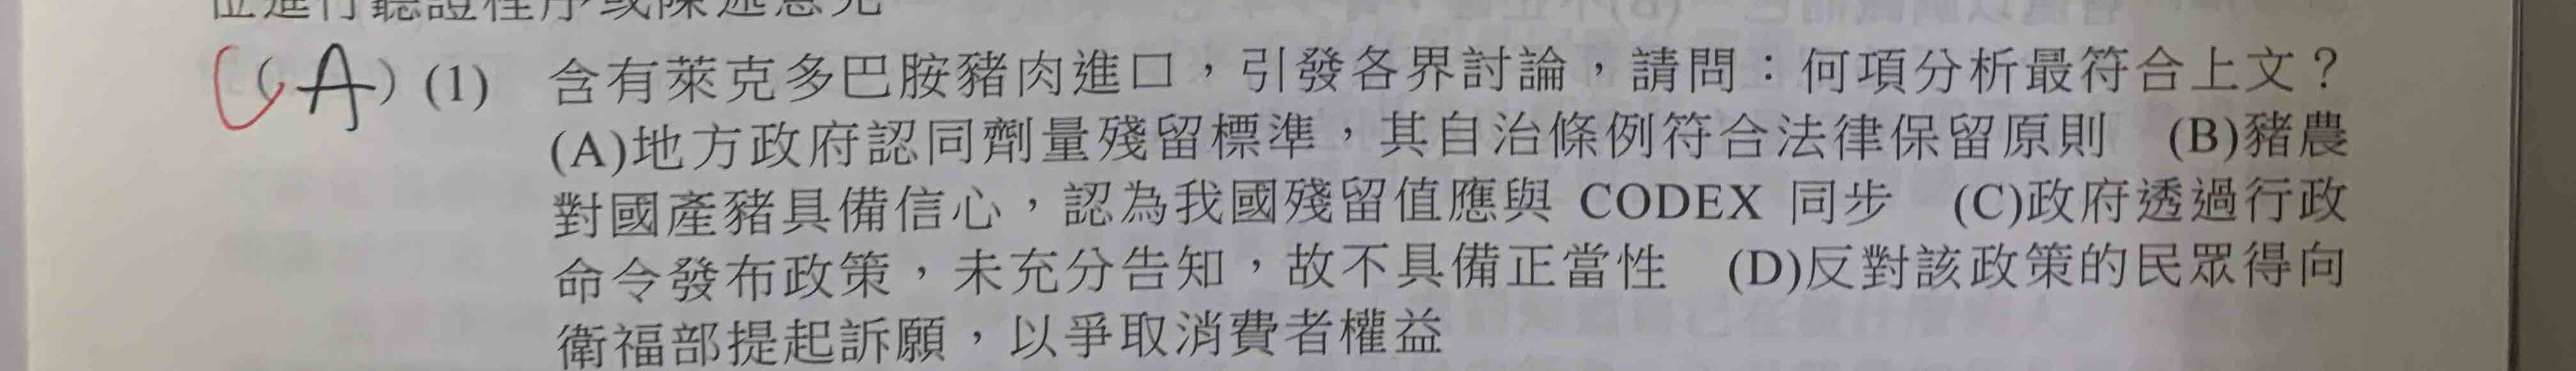 位進行聽證程序或陳述意見
C(A)(1) 含有萊克多巴胺豬肉進口，引發各界討論，請問：何項分析最符合上文？
(A)地方政府認同劑量殘留標準，其自治條例符合法律保留原則 (B)豬農
對國產豬具備信心，認為我國殘留值應與 CODEX 同步 (C)政府透過行政
命令發布政策，未充分告知，故不具備正當性 (D)反對該政策的民眾得向
衛福部提起訴願，以爭取消費者權益